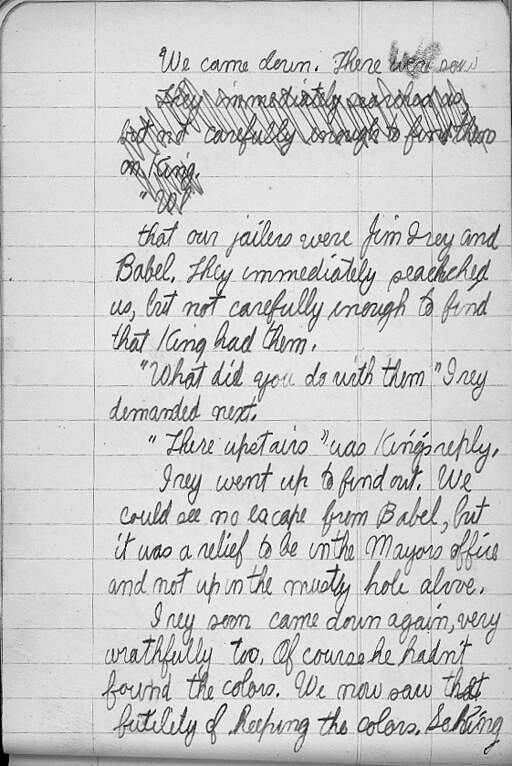 We came down. There were saw
They immediately searched us,
but not carefully enough to find them
on King.
"W
that our jailers were Jim Irey and
Babel. They immediately seacheched
us, but not carefully enough to find
that King had them.
"What did you do with them" Irey
demanded next.
"There upstairs" was King's reply.
Irey went up to find out. We
could see no escape from Babel, but
it was a relief to be in the Mayors office
and not up in the musty hole above.
Irey soon came down again, very
wrathfully too. Of course he hadn't
found the colors. We now saw that
futility of keeping the colors. So King